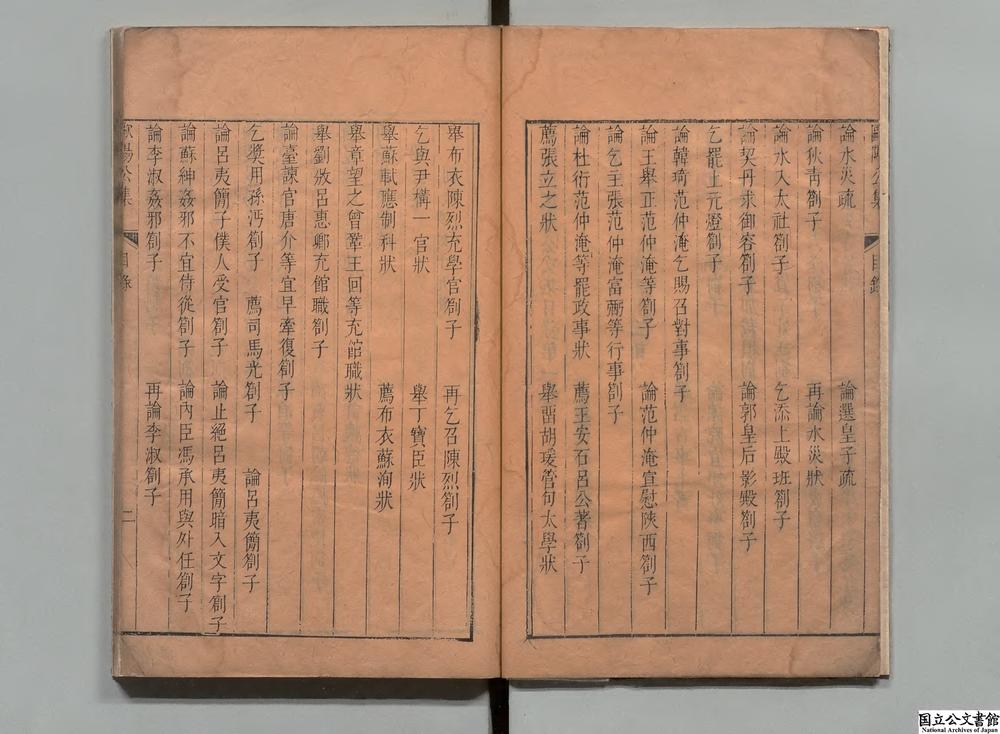 歐陽公集 目錄
論水災疏 論選皇子疏
論狄青劄子 再論水災狀
論水入太社劄子 乞添上殿班劄子
論契丹求御容劄子 論郭皇后影殿劄子
乞罷上元燈劄子
論韓琦范仲淹乞賜召對事劄子
論王舉正范仲淹等劄子 論范仲淹宣慰陝西劄子
論乞主張范仲淹富弼等行事劄子
論杜衍范仲淹等罷政事狀 薦王安石呂公著劄子
薦張立之狀 舉留胡瑗管句太學狀
舉布衣陳烈充學官劄子 再乞召陳烈劄子
乞與尹構一官狀 舉丁寶臣狀
舉蘇軾應制科狀 薦布衣蘇洵狀
舉章望之曾鞏王回等充館職狀
舉劉攽呂惠卿充館職劄子
論臺諫官唐介等宜早牽復劄子
乞獎用孫沔劄子 薦司馬光劄子 論呂夷簡劄子
論呂夷簡子僕人受官劄子 論止絕呂夷簡暗入文字劄子
論蘇紳姦邪不宜侍從劄子 論內臣馮承用與外任劄子
論李淑姦邪劄子 再論李淑劄子
歐陽公集 目錄 二
国立公文書館
National Archives of Japan